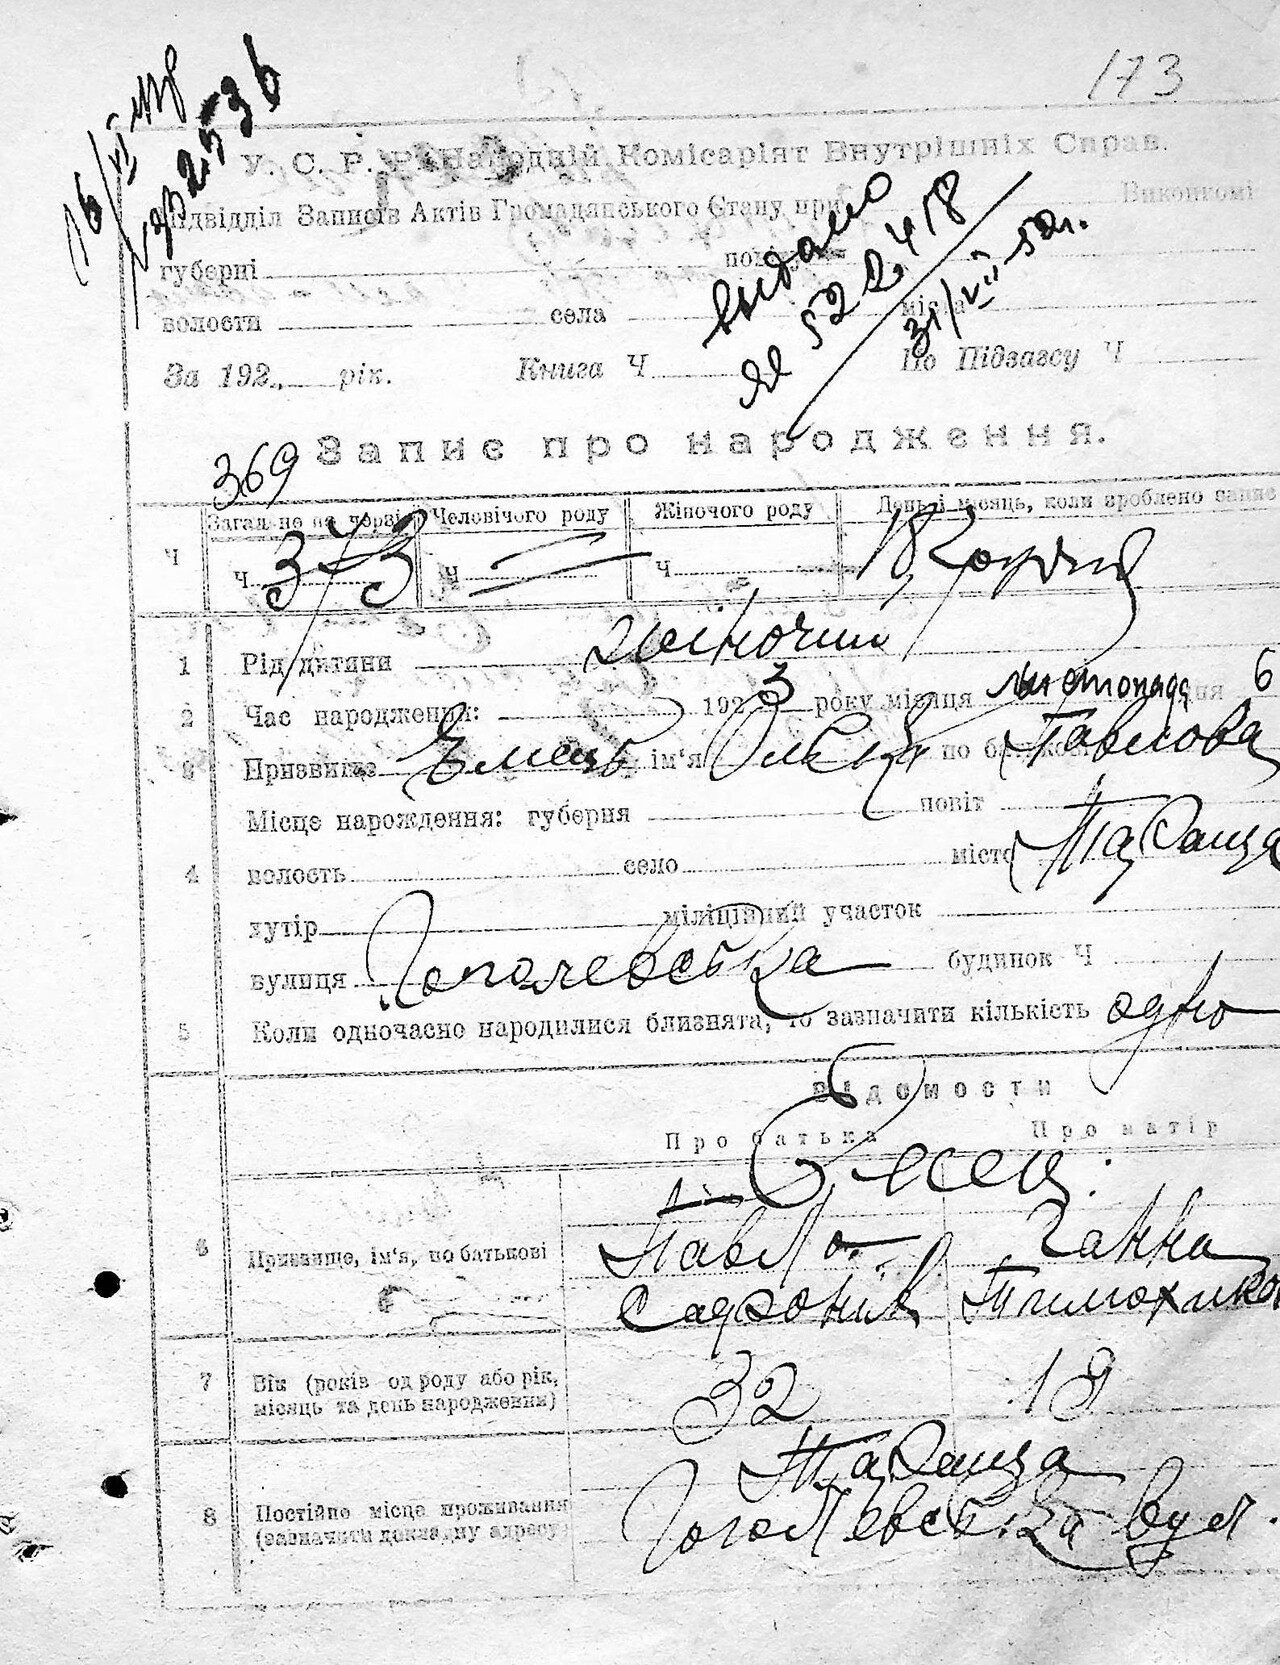 173
16/VI
У. С. Р. Р. Народній Комісаріят Внутрішніх Справ.
Підвідділ Записів Актів Громадянського Стану при Виконкомі
губерні
видано
№ 522418
31/VII-52г.
волости села міста
За 192 рік. Книга Ч По Підзагсу Ч
Запис про народження.
369
Загальне по черзі Чоловічого роду Жіночого роду День і місяць, коли зроблено запис
Ч Ч 373 Ч Ч
1 Рід дитяни жіночий
2 Час народження: 1923 року місяця листопада дня 6
3 Призвище Ємець ім'я Ольга по батькові Павлова
Місце народження: губерня повіт
4 волость село місто Тараща
хутір міліційний участок
вулиця Гоголевська будинок Ч
5 Коли одночасно народилися близнята, то зазначити кількість одно
Відомости
Про батька Про матір
6 Призвище, ім'я, по батькові
Павло Ганна
Сафонів
7 Вік (років од роду або рік, місяць та день народження) 32 19
Тараща
8 Постійне місце проживання
(зазначити докладну адресу) Гоголевська вул.